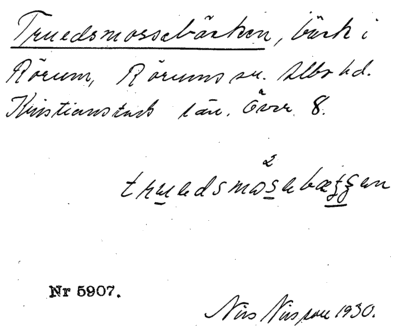 Truedsmossebäcken, bäck i
Rörum, Rörums sn. Albo hd.
Kristianstads län. Över 8.
2
truedsmosebæggen
Nr 5907.
Nils Nilsson 1930.